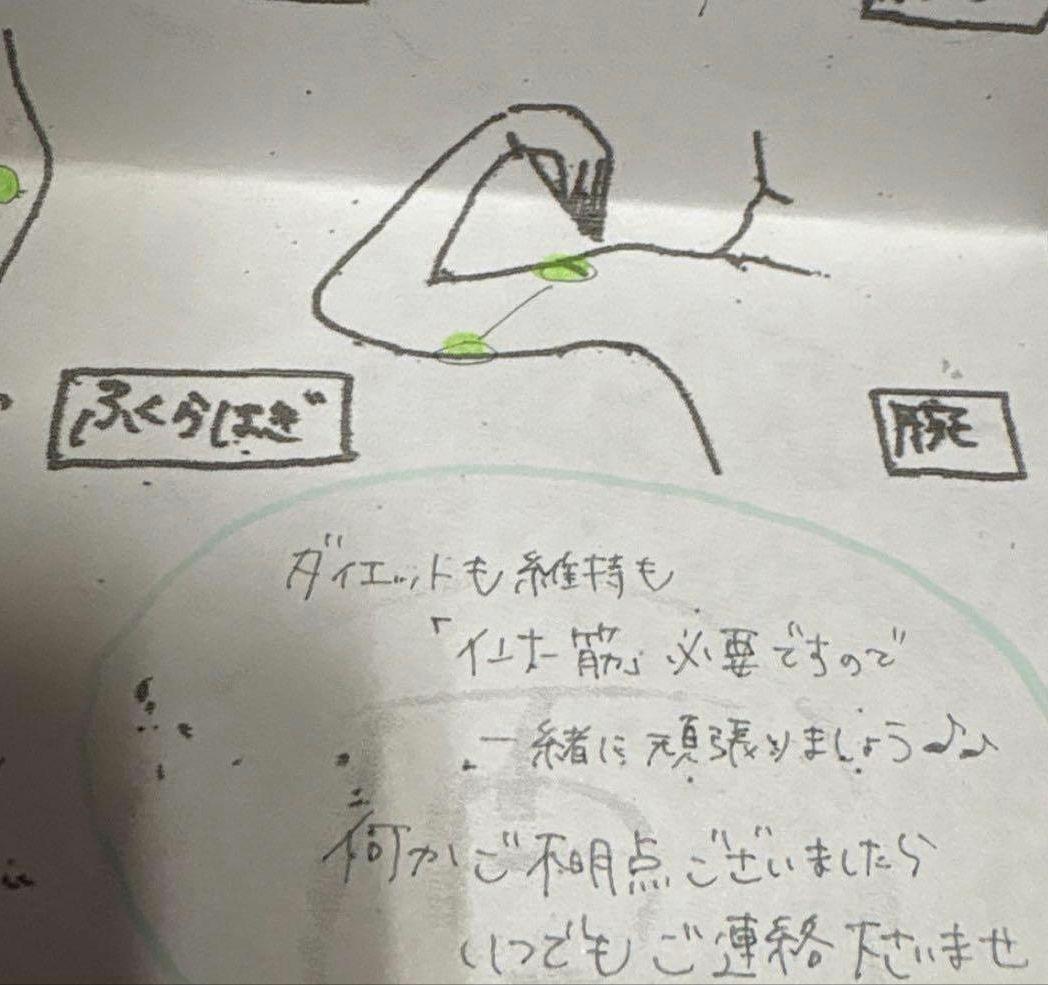 ふくらはぎ
腕
ダイエットも維持も
「インナー筋」必要ですので
一緒に頑張りましょう♪♪
何かご不明点ございましたら
いつでもご連絡下さいませ